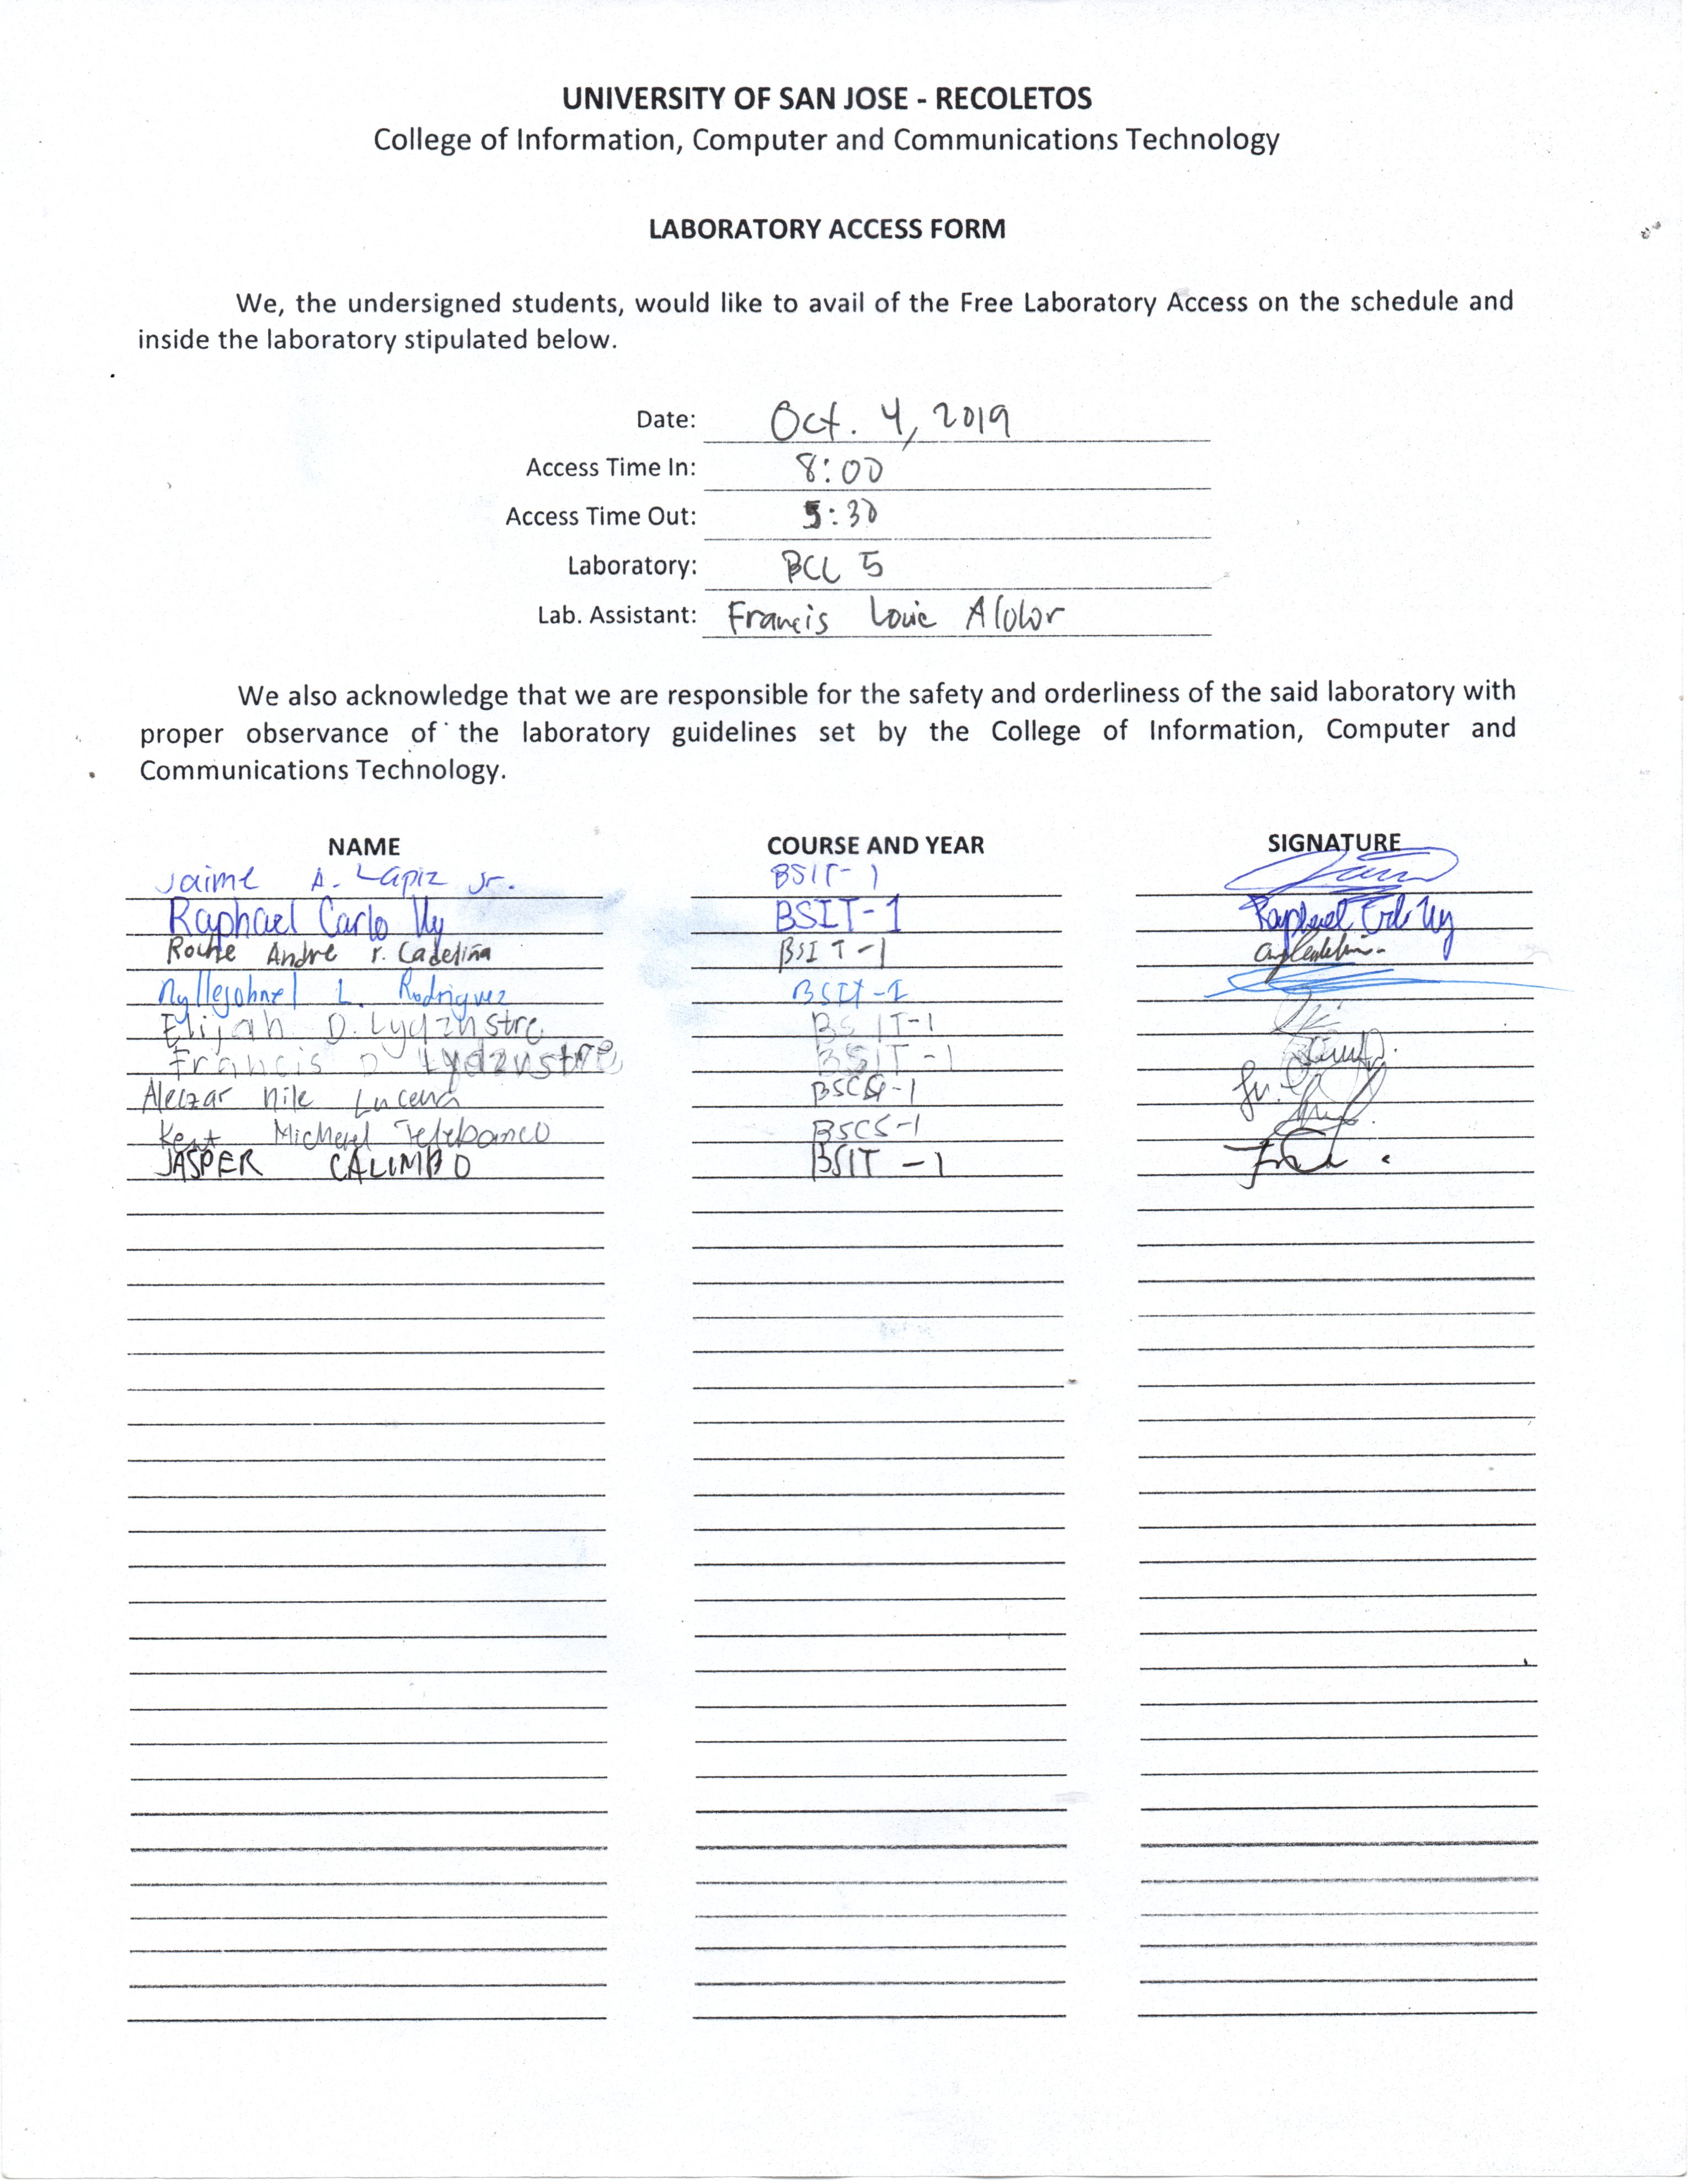 UNIVERSITY OF SAN JOSE - RECOLETOS
College of Information, Computer and Communications Technology
LABORATORY ACCESS FORM
We, the undersigned students, would like to avail of the Free Laboratory Access on the schedule and
inside the laboratory stipulated below.
Date: Oct. 4, 2019
Access Time In: 8:00
Access Time Out: 5:30
Laboratory: BCL 5
Lab. Assistant: Francis Louie Alolor
We also acknowledge that we are responsible for the safety and orderliness of the said laboratory with
proper observance of the laboratory guidelines set by the College of Information, Computer and
Communications Technology.
NAME COURSE AND YEAR SIGNATURE
Jaime A. Lapiz Jr. BSIT-1
Raphael Carlo Uy BSIT-1 Raphael Carlo Uy
Andre r. Cadeliña BSIT-1
Nyllejohnel L. Rodriguez BSIT-1
Elijah D. BSIT-1
Francis D BSIT-1
Aleczar Nile Lucena BSCS-1
Kent Micheal BSCS-1
JASPER CALIMBO BSIT-1